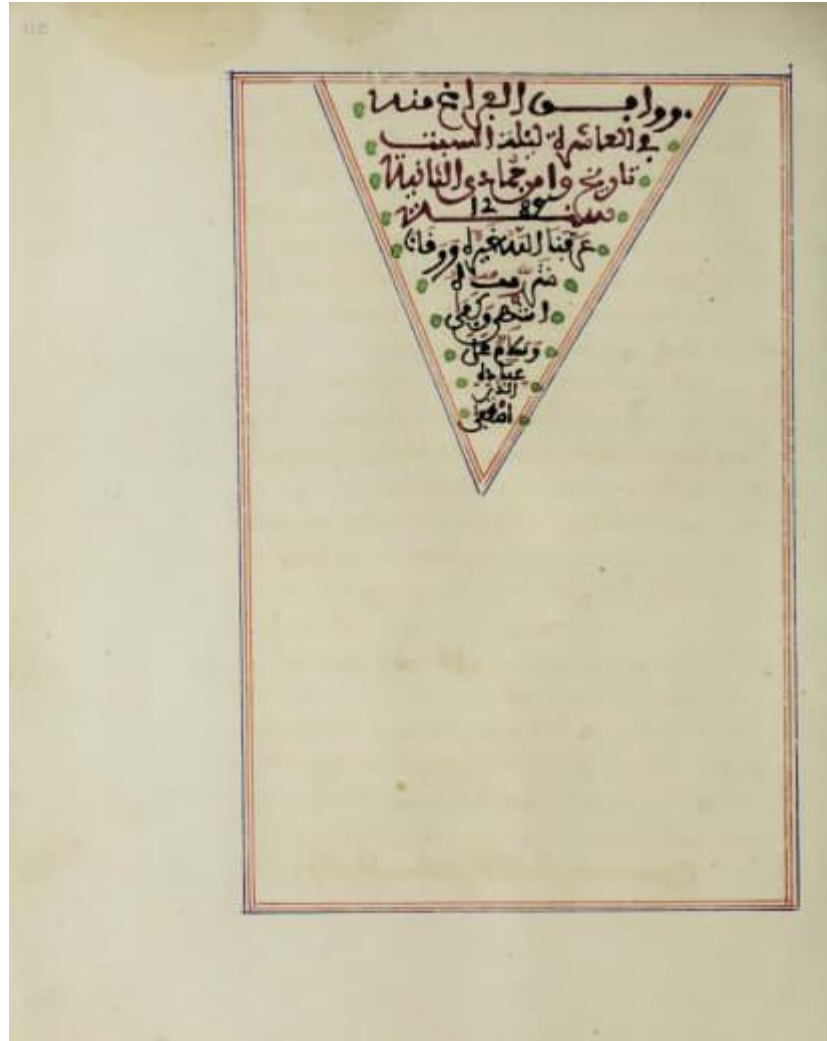 ووافق الفراغ منه
في العاشرة ليلة السبت
تاريخ وامن جمادى الثانية
سنة 1280
عرفنا الله خيره ووقانا
شره
انتهى وكفى
وسلام على
عباده
الذين
اصطفى